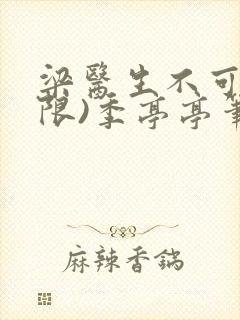 梁醫生不可
限)季亭亭
麻辣香鍋